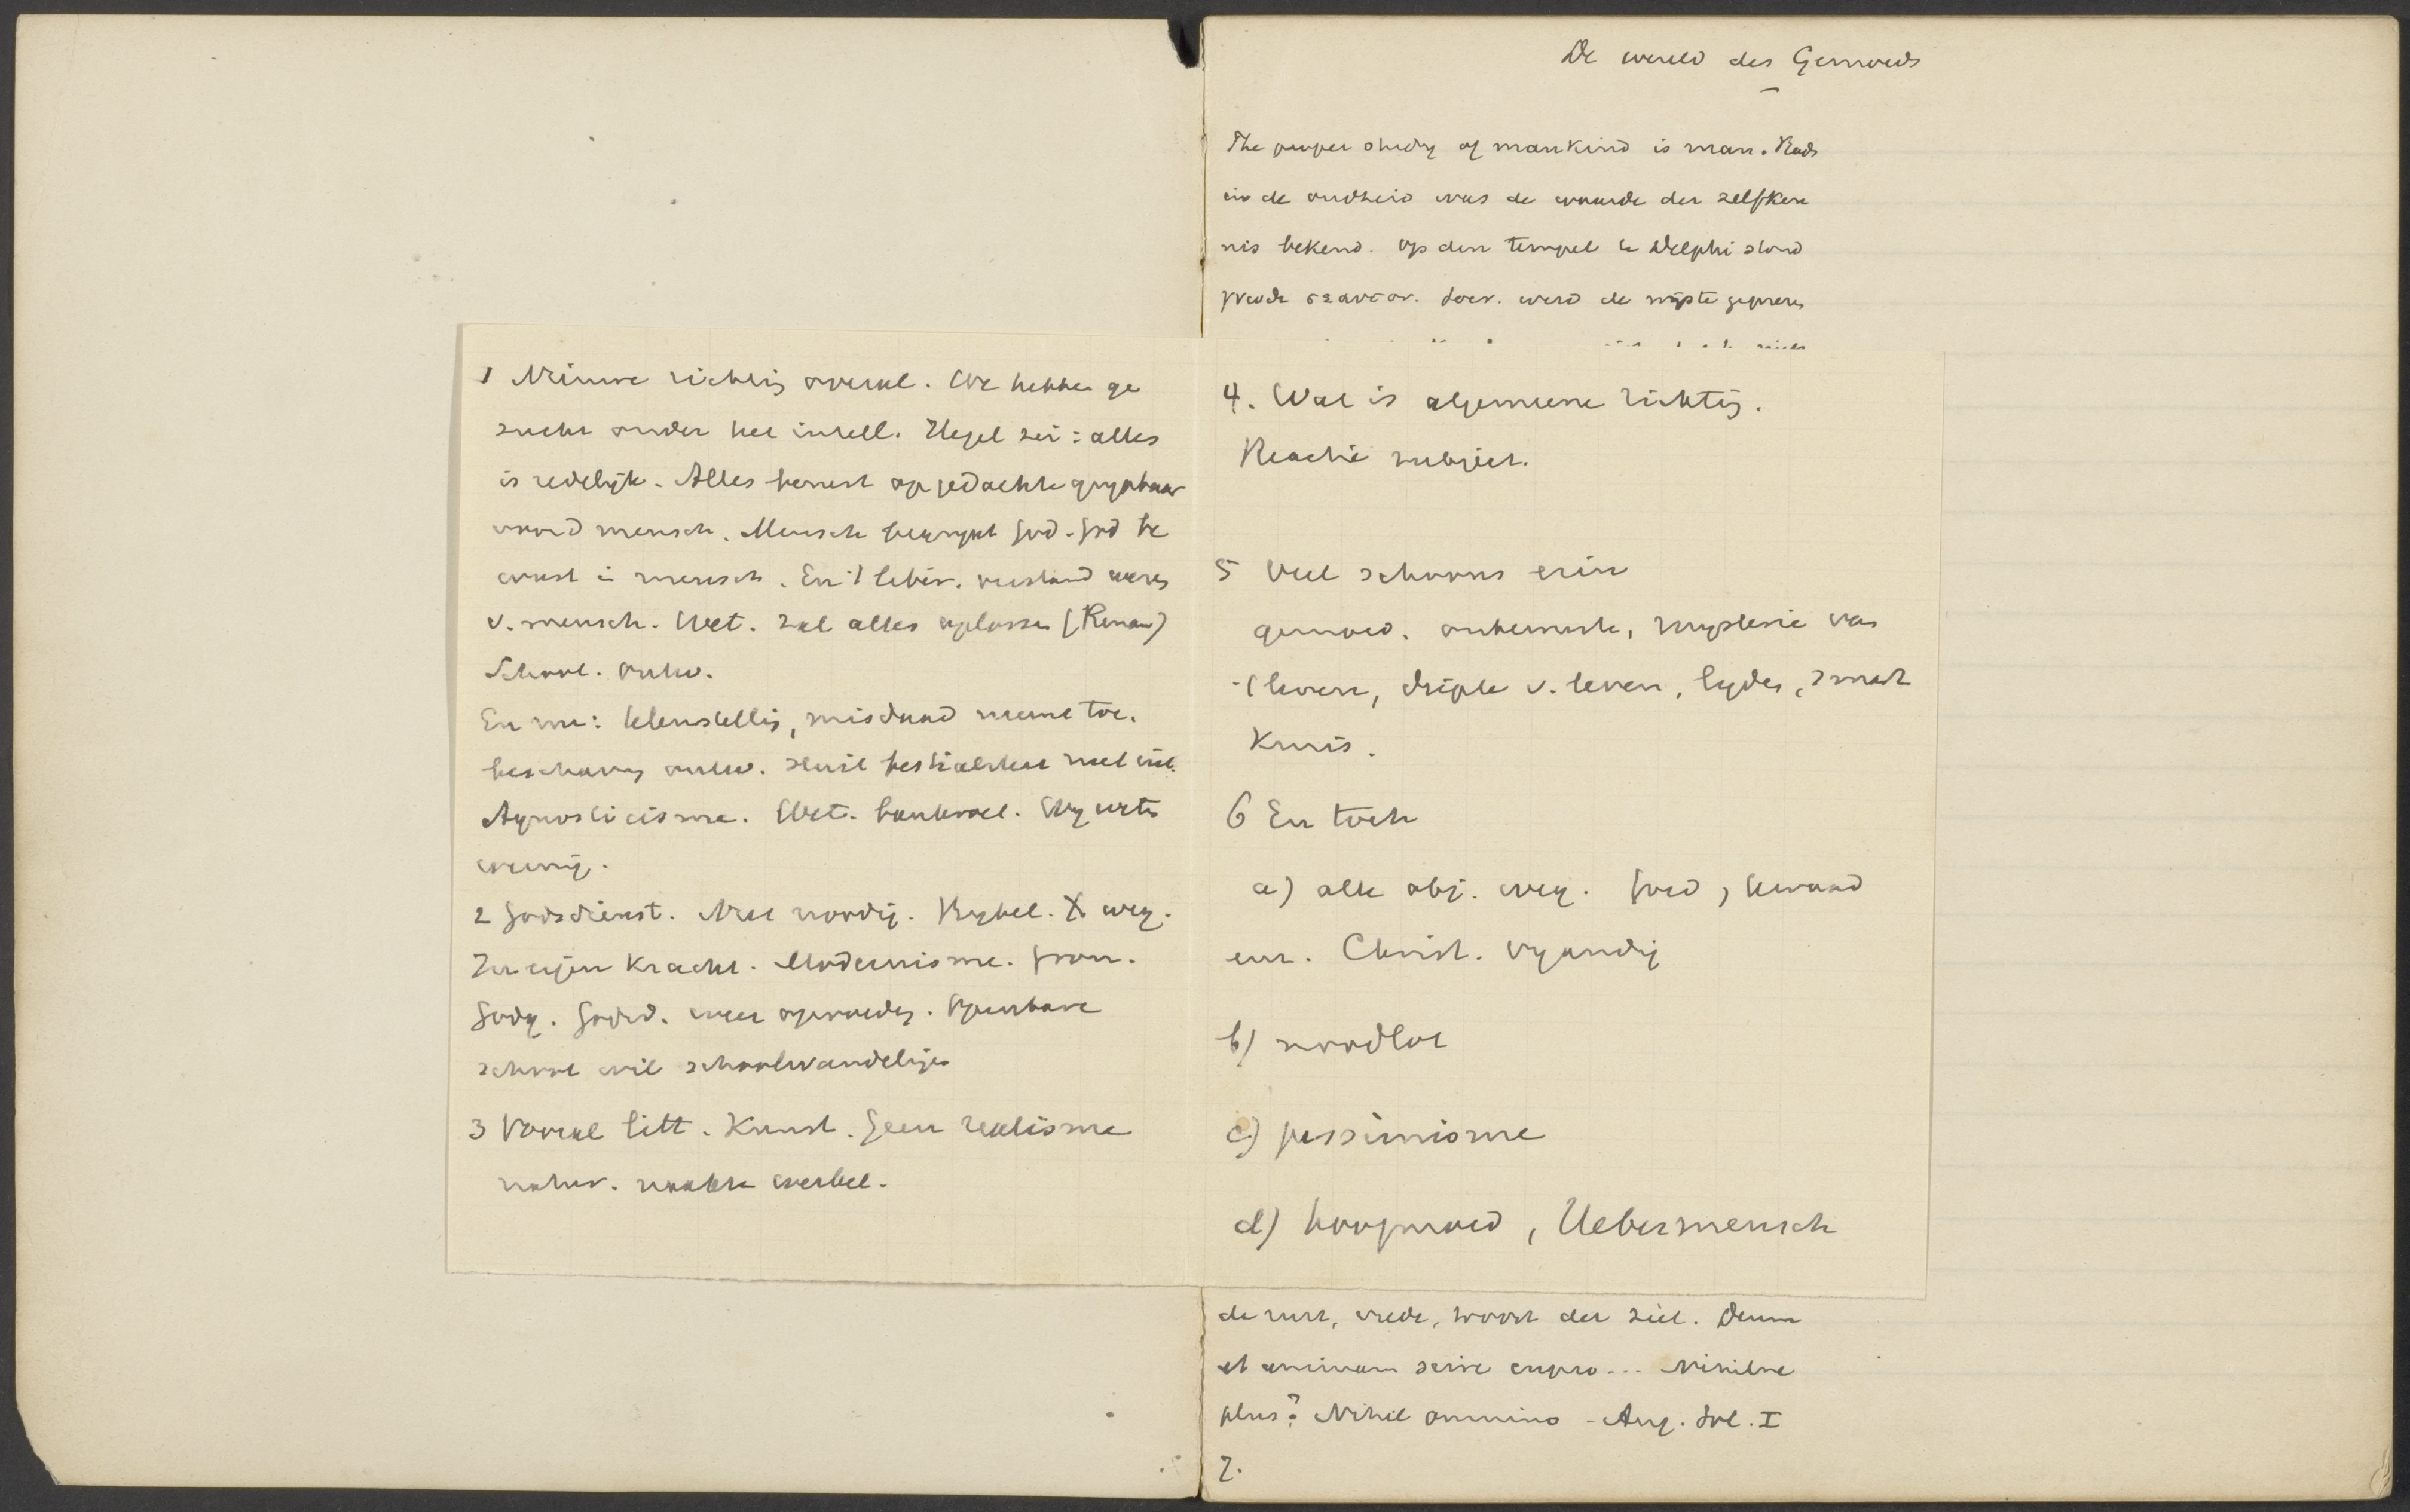 De wereld des Gemoeds
The proper study of mankind is man. Reeds
in de oudheid was de waarde der zelfken
nis bekend. Op den tempel te Delphi stond
γνωθι σεαυτον. Socr. werd de wijste geprezen
1 Nieuwe richting overal. We hebben ge
zucht onder het intell. Hegel zei: alles
is redelijk. Alles berust op gedachte grijpbaar
voor d mensch. Mensch begrijpt God. God be
wust in mensch. En 't liber. verstand wezen
v. mensch. Wet. zal alles oplossen (Renan)
School. ontw.
En nu: teleurstelling, misdaad neemt toe.
beschaving ontw. bestialiteit niet uit.
Agnosticisme. Wet. bankroet. Wij weten
weinig.
2 Godsdienst. Niet noodig. Bijbel. X weg.
In eigen kracht. Modernisme. Gron.
Godg. Godsd. weer opvoeding. Openbare
school wil schoolwandelingen
3 Vooral litt. Kunst. Geen realisme
natur. naakte werkel.
4. Wat is algemeene richting.
Reactie subject.
5 Veel schoons erin
gemoed. onbewuste, mysterie van
't leven, diepte v. leven, lijden, smart
Kruis.
6 En toch
a) alle obj. weg. Goed, kwaad
enz. Christ. vijandig
b) noodlot
c) pessimisme
d) hoogmoed, Uebermensch
de rust, vrede, troost der ziel. Deum
et animam scire cupio... Nihilne
plus? Nihil omnino - Aug. Sol. I
7.